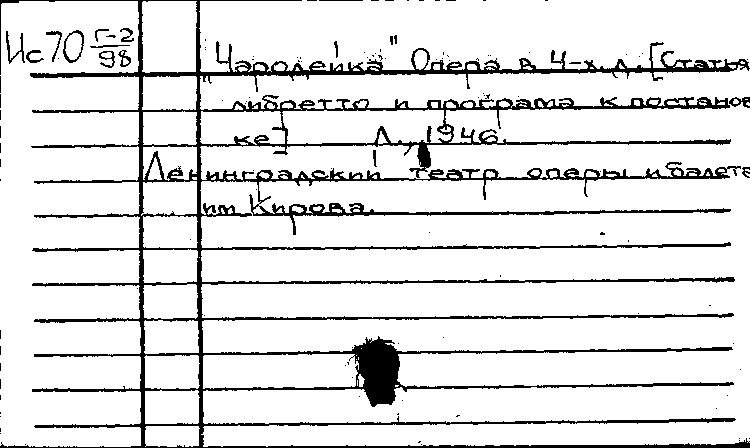 Ис70 Г-2/98
„Чародейка" Опера в 4-х. д. [Статья
либретто и програма к постанов
ке] Л., 1946.
Ленинградский театр оперы и балета
им Кирова.